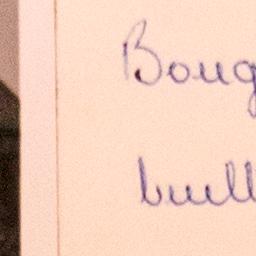 Boug
bull